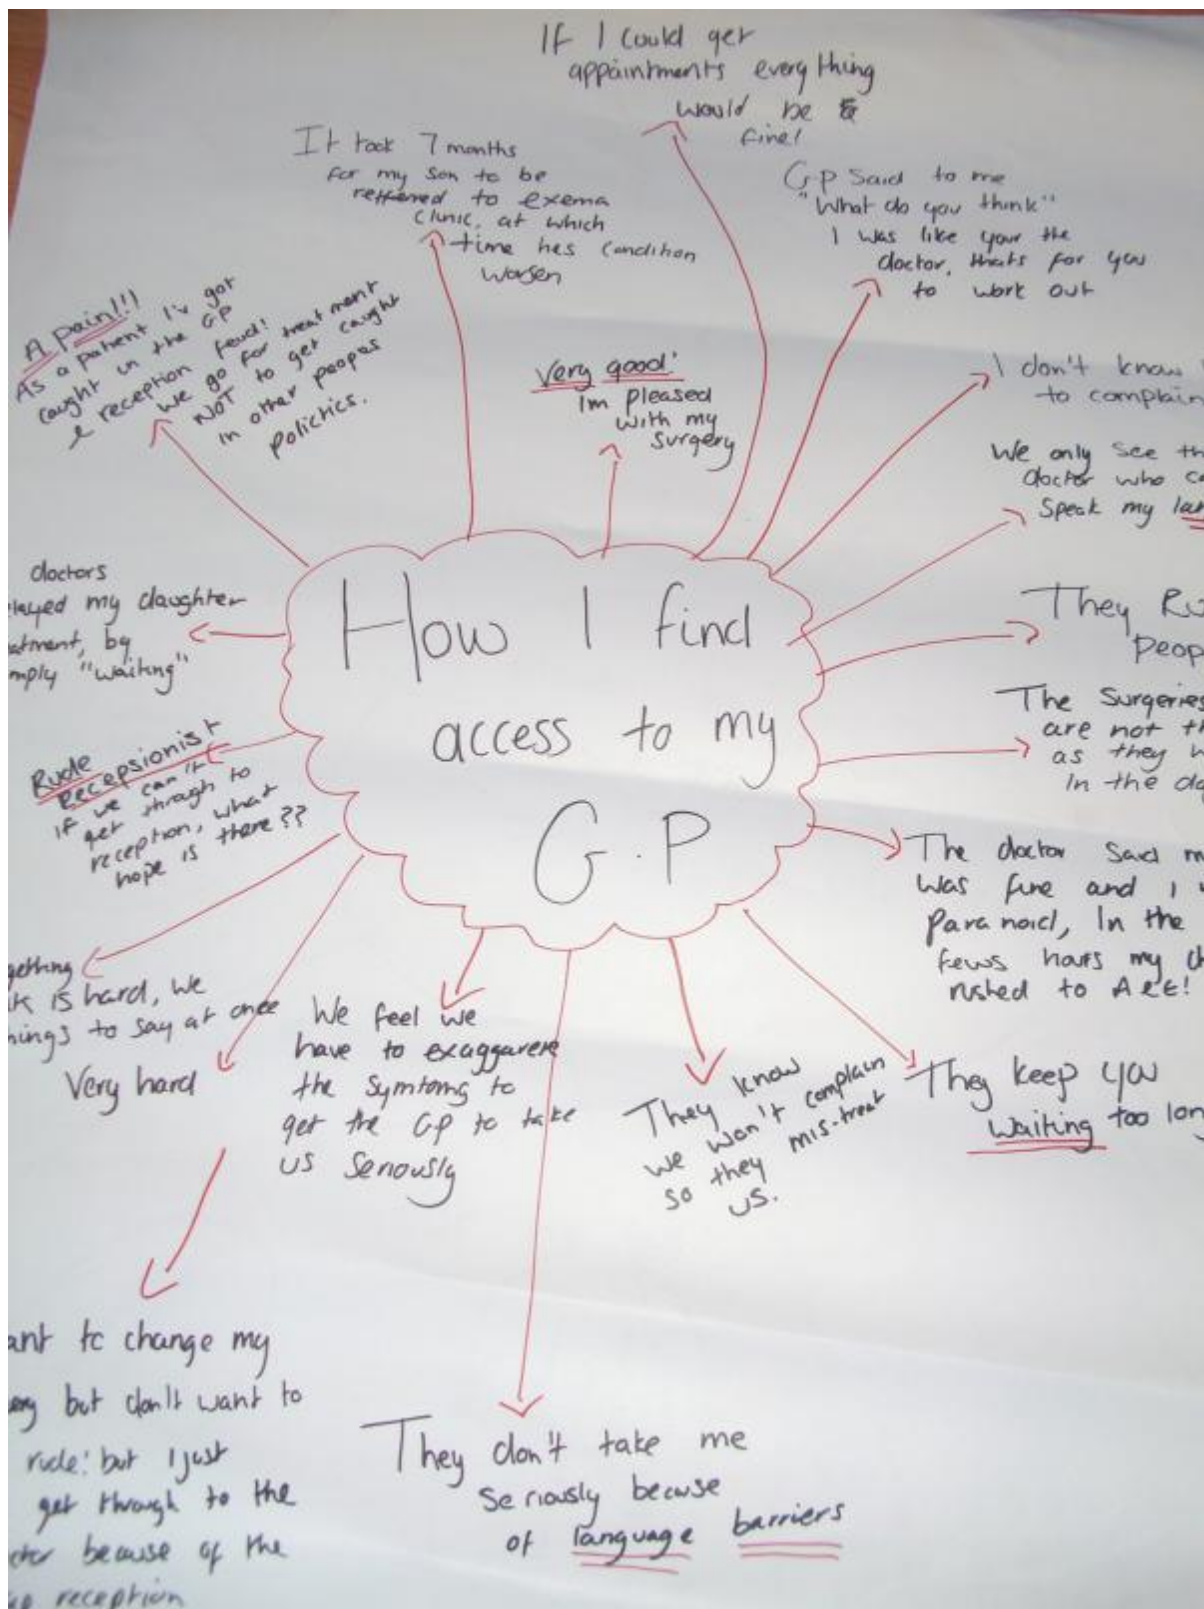 If I could get
appaintments everything
would be
fine!
It took 7 months
for my son to be
reffered to exema
clinic, at which
time hes condition
worsen
GP Said to me
"What do you think"
I was like your the
doctor, thats for you
to work out
A pain!!!
As a patient I'v got
caught in the GP
& reception feud!
We go for treatment
NOT to get caught
in other peopos
polictics.
Very good!
Im pleased
with my
surgery
I don't know
to complain
We only see
doctor who
Speak my
How I find
access to my
G.P
doctors
my daughter
by
"waiting"
They
The Surgeries
are not
as they
In the
Rude
Recepsionist
If we can't
get through to
reception, what
hope is there??
The doctor Said
was fine and I
paranoid, In the
fews hours my
rushed to A&E!
is hard, we
to say at once
Very hard
We feel we
have to exaggarere
the Symtoms to
get the GP to take
us Seriously
They know
we won't complain
so they mis-treat
us.
They keep you
waiting too
to change my
but don't want to
rude! but I just
get through to the
because of the
reception
They don't take me
Seriously becuse
of language barriers